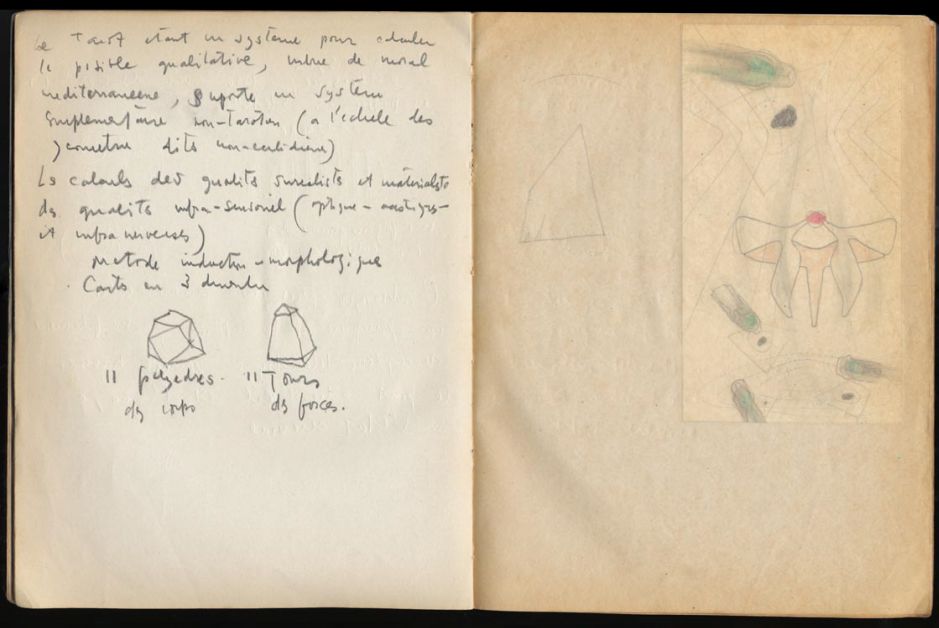 Le Tarot etant un système pour calculer
le possible qualitative, imbue de moral
mediterraneene, suporte un system
suplementaire non-Taroten (a l'echele des
geometrie dits non-euclidiene)
Le calculs des qualits surealists et materialste
des qualits infra-sensoriel (optique -
et infra nerveuses)
Metode induction-morphologique
Carts en 3 dimention
11 polyedres 11 Tours
des corps des forces.